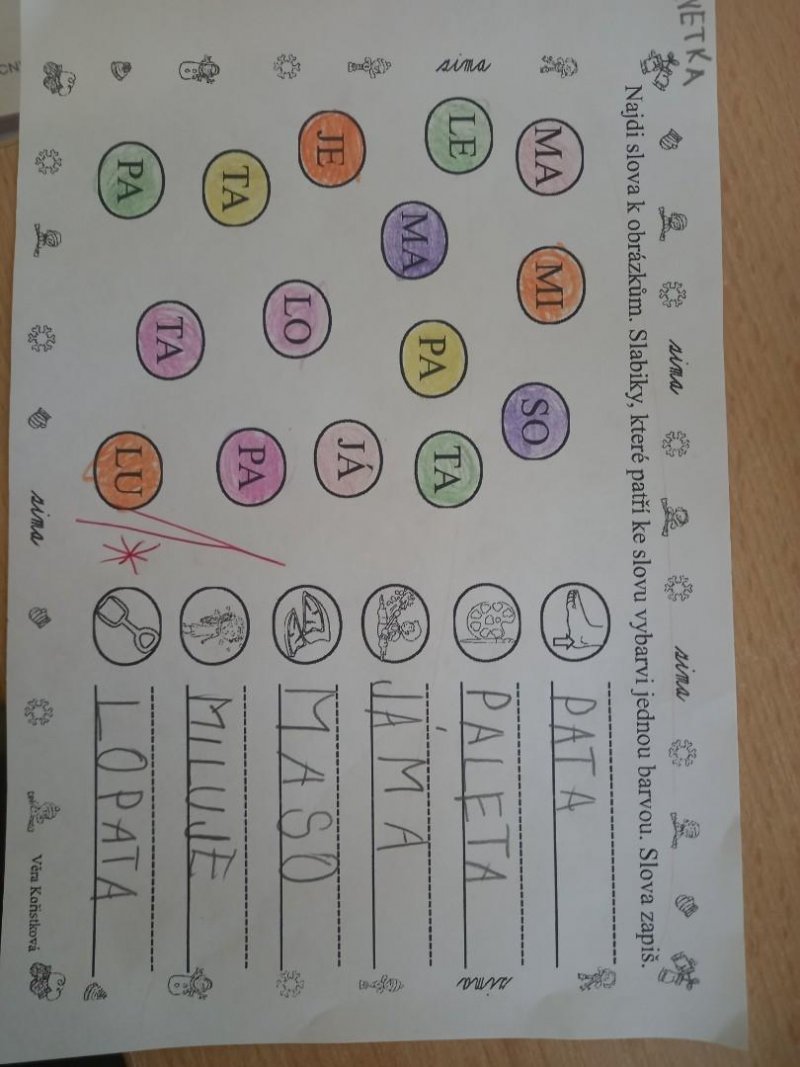 NETKA
zima zima
Najdi slova k obrázkům. Slabiky, které patří ke slovu vybarvi jednou barvou. Slova zapiš.
MA MI SO
PATA
zima LE MA PA TA
PALETA zima
JE LO JÁ
JÁMA
MASO
TA PA
MILUJE
PA TA LU
LOPATA
zima
Věra Kořistková